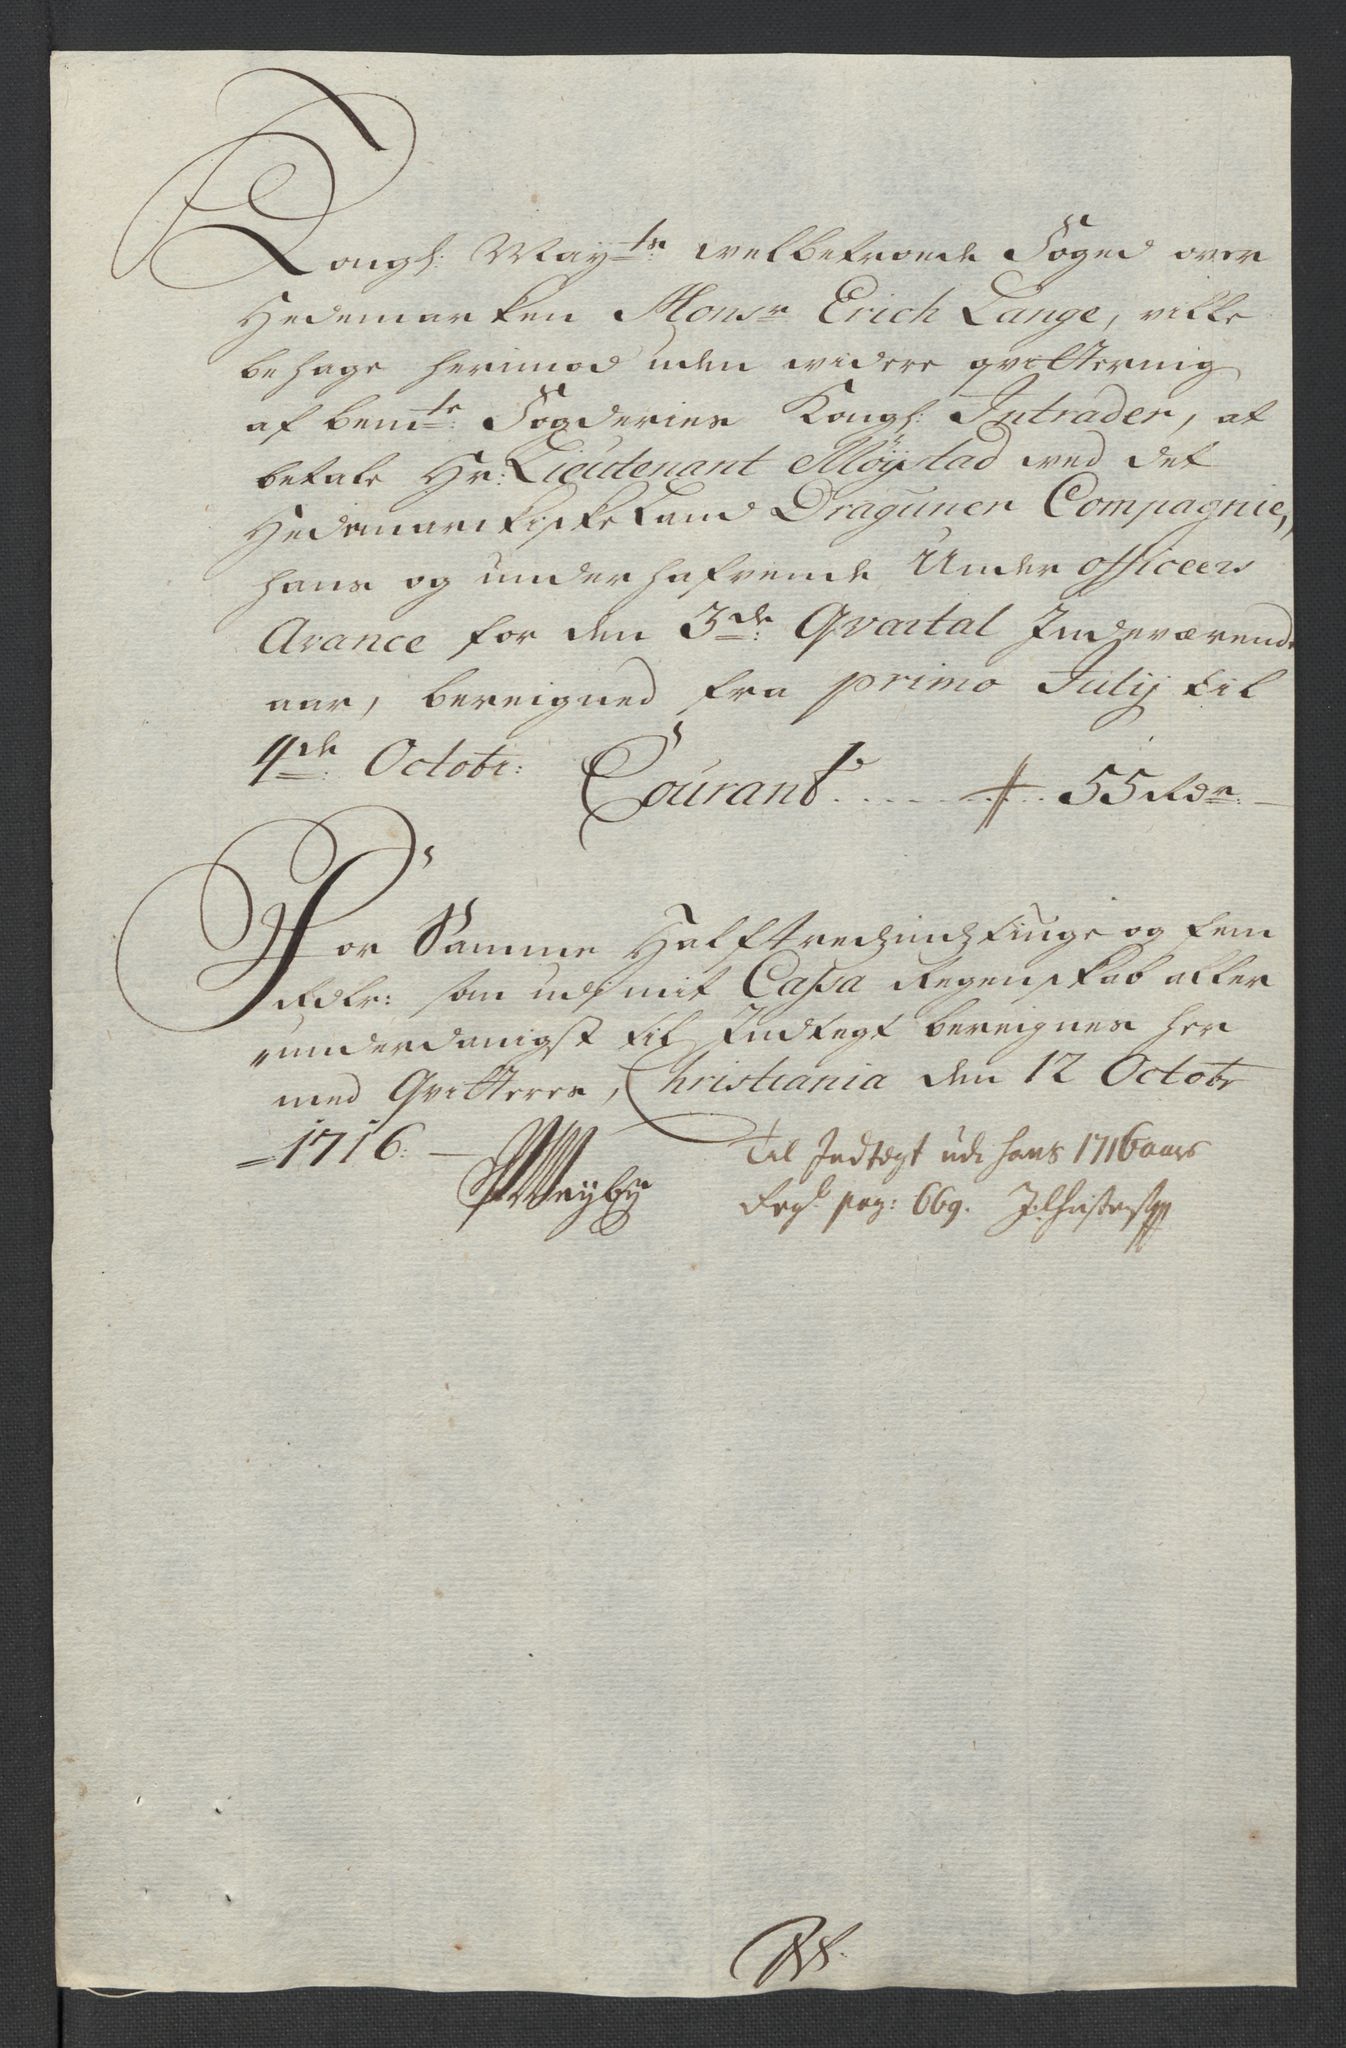 Kongl: May.ts: welbetroede Foged over
Hedemarken Monsr Erich Lange, ville
behage herimod uden widere qvittering
af bemte: Fogderies Kongl: Intrader, at
betale Hr: Lieutenant Møystad wed det
Hedemarckiske Land Draguner Compagnie,
hans og underhafvende Under officeers
Avance for den 3de: Qvartal Indeværende
aar, bereigned fra primo Julij til
4de: Octobr:
Courant . . . . . . . 55 Rdr: —
For Samme Halftredsindstiuge og fem
Rdlr: som udj mit Cassa Regenskab aller
underdanigst til Indtegt bereignes her
med Qvitteres, Christiania den 12 Octobr
1716: —
PWeyby
Til Indtegt udi hans 1716 aars
Regl. pag: 669.